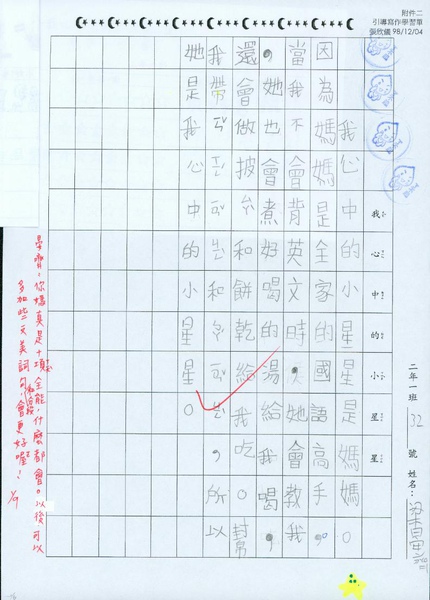 附件二
引導寫作學習單
張欣儀 98/12/04
二年一班 32 號 姓名：
我心中的小星星
我心中的小星星是媽媽。
因為媽媽是全家的國語高手。
當我不會背英文時，她會教我，
她也會煮好喝的湯給我喝，
還會做披ㄙㄚ和餅乾給我吃。幫
我帶 和 ，所以
她是我心中的小星星。
你媽真是十項全能，什麼都會。以後可以
多加些 美詞句，會更好喔！